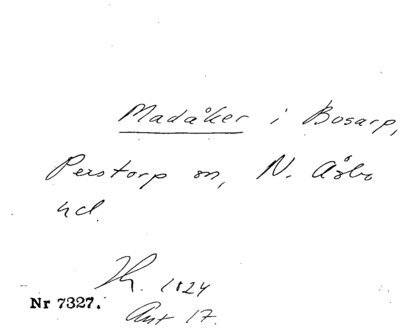 Madåker i Bosarp,
Perstorp sn, N. Åsbo
hd.
Hr. 1824
Nr 7327.
Akt 17.